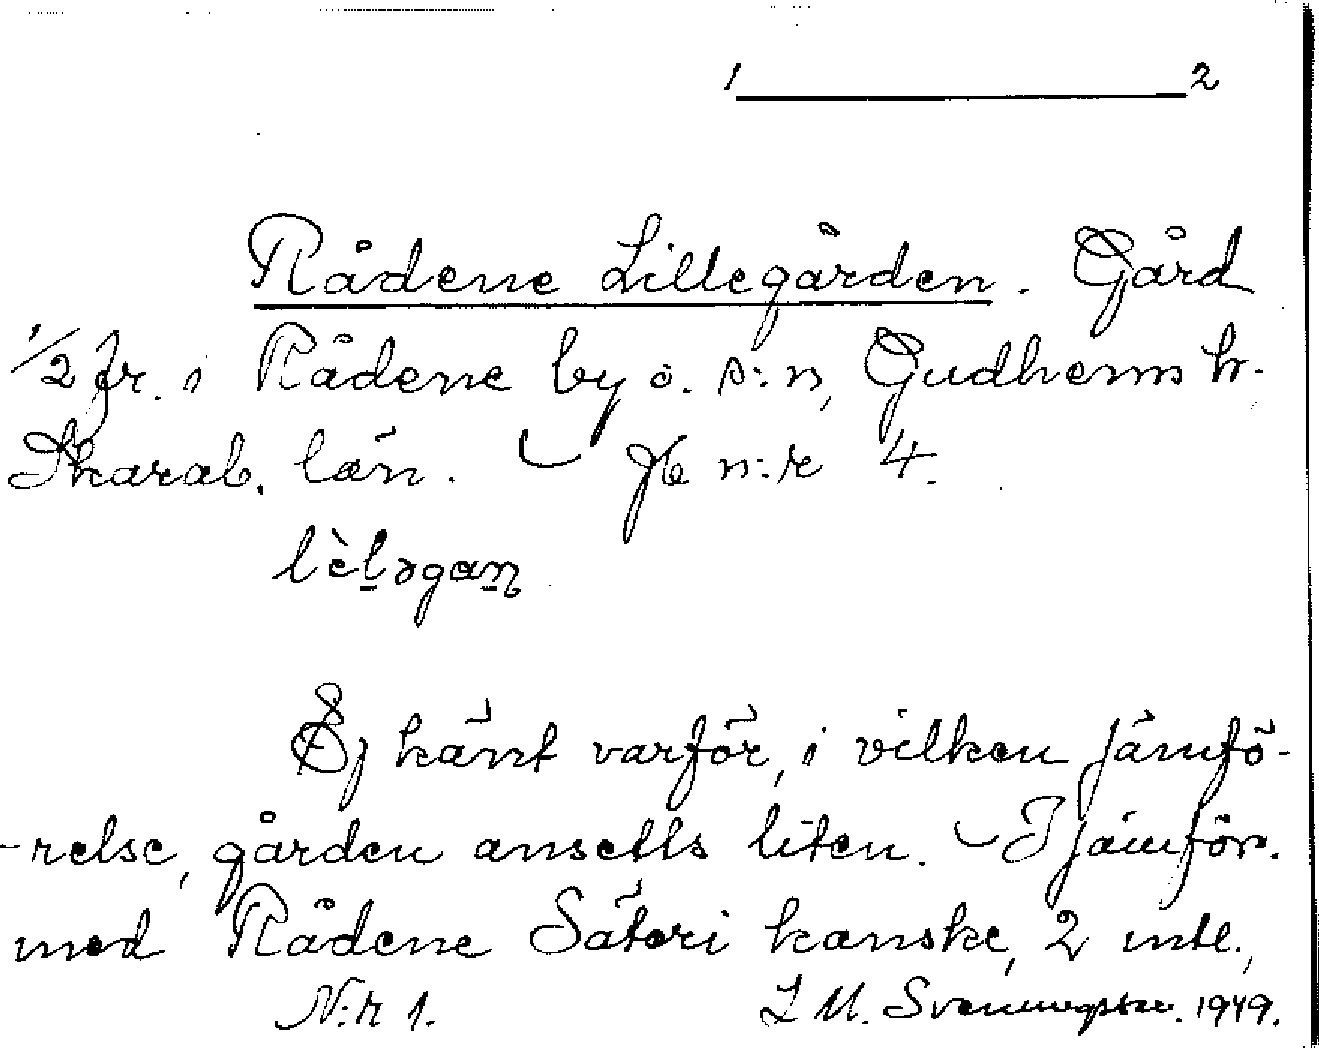 1 2
Rådene Lillegården. Gård
1/2 fr. i Rådene by o. s:n, Gudhems h.
Skarab. län. Jb n:r 4.
lèl̠əgan̠
Ej känt varför, i vilken jämfö-
-relse, gården ansetts liten. I jämför.
med Rådene Säteri kanske, 2 mtl.,
N:r 1. I M. Svenungsson. 1949.